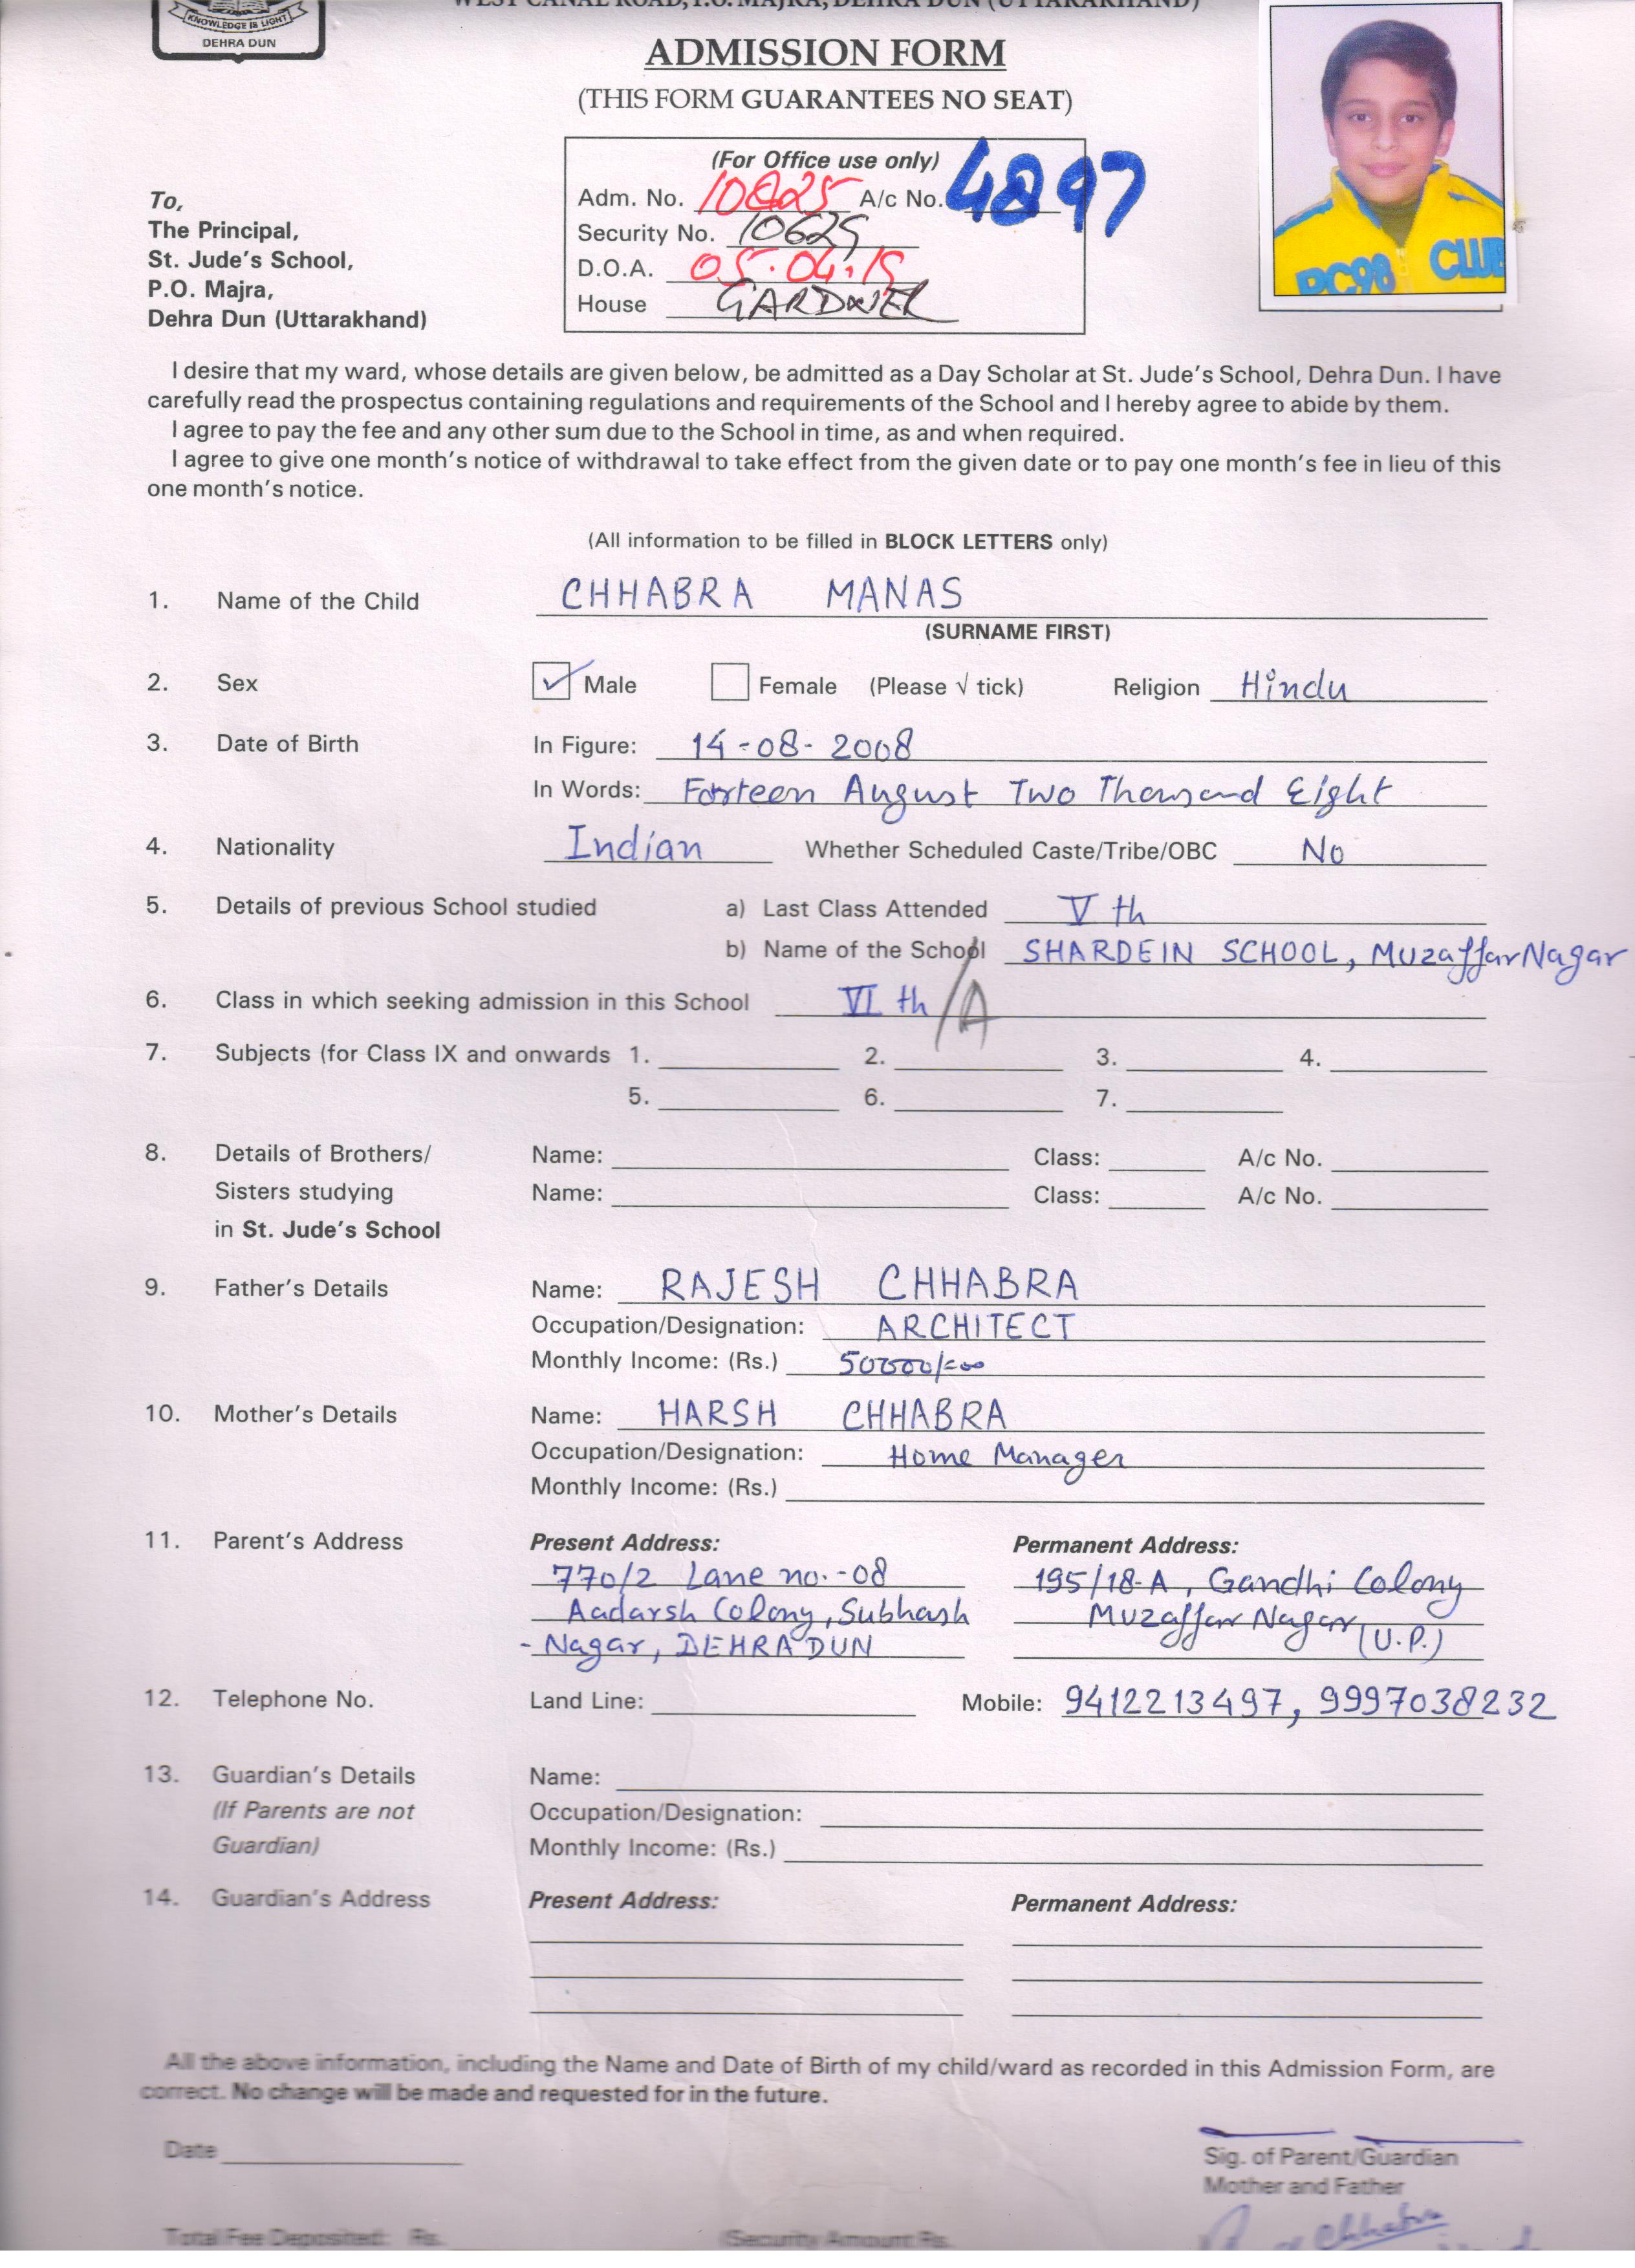 WEST CANAL ROAD, P.O. MAJRA, DEHRA DUN (UTTARAKHAND)
KNOWLEDGE IS LIGHT
DEHRA DUN
ADMISSION FORM
(THIS FORM GUARANTEES NO SEAT)
(For Office use only)
Adm. No. 10825 A/c No. 4897
Security No. 10625
D.O.A. 05.04.19
House GARDNER
PC98 CLUB
To,
The Principal,
St. Jude's School,
P.O. Majra,
Dehra Dun (Uttarakhand)
I desire that my ward, whose details are given below, be admitted as a Day Scholar at St. Jude's School, Dehra Dun. I have
carefully read the prospectus containing regulations and requirements of the School and I hereby agree to abide by them.
I agree to pay the fee and any other sum due to the School in time, as and when required.
I agree to give one month's notice of withdrawal to take effect from the given date or to pay one month's fee in lieu of this
one month's notice.
(All information to be filled in BLOCK LETTERS only)
1. Name of the Child CHHABRA MANAS
(SURNAME FIRST)
2. Sex ✓ Male Female (Please √ tick) Religion Hindu
3. Date of Birth In Figure: 14-08-2008
In Words: Forteen August Two Thousand Eight
4. Nationality Indian Whether Scheduled Caste/Tribe/OBC No
5. Details of previous School studied a) Last Class Attended V th
b) Name of the School SHARDEIN SCHOOL, MuzaffarNagar
6. Class in which seeking admission in this School VI th /A
7. Subjects (for Class IX and onwards 1. 2. 3. 4.
5. 6. 7.
8. Details of Brothers/ Name: Class: A/c No.
Sisters studying Name: Class: A/c No.
in St. Jude's School
9. Father's Details Name: RAJESH CHHABRA
Occupation/Designation: ARCHITECT
Monthly Income: (Rs.) 50000/=00
10. Mother's Details Name: HARSH CHHABRA
Occupation/Designation: Home Manager
Monthly Income: (Rs.)
11. Parent's Address Present Address: Permanent Address:
770/2 Lane no.-08 195/18-A, Gandhi Colony
Aadarsh Colony, Subhash Muzaffar Nagar
- Nagar, DEHRADUN (U.P.)
12. Telephone No. Land Line: Mobile: 9412213497, 9997038232
13. Guardian's Details Name:
(If Parents are not Occupation/Designation:
Guardian) Monthly Income: (Rs.)
14. Guardian's Address Present Address: Permanent Address:
All the above information, including the Name and Date of Birth of my child/ward as recorded in this Admission Form, are
correct. No change will be made and requested for in the future.
Date
Sig. of Parent/Guardian
Mother and Father
Chhabra
Total Fee Deposited: Rs. (Security Amount Rs.